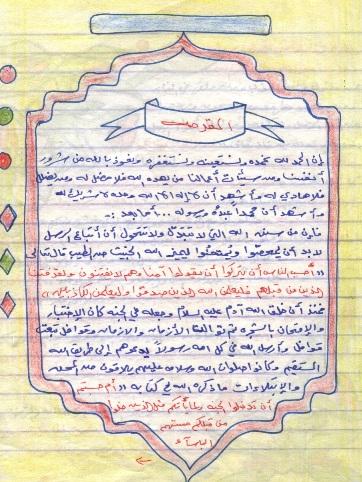 المقدمة
إن الحمد لله نحمده ونستعينه ونستغفره ونعوذ بالله من شرور
أنفسنا ومن سيئات أعمالنا من يهده الله فلا مضل له ومن يضلل
فلا هادي له وأشهد أن لا إله إلا الله وحده لا شريك له
وأشهد أن محمداً عبده ورسوله ... أما بعد :-
فإن من سنن الله التي لا تتبدل ولا تتحول أن أتباع الرسل
لابد أن يمحصوا ويمتحنوا ليميز الله الخبيث من الطيب قال تعالى
(( أحسب الناس أن يتركوا أن يقولوا آمنا وهم لا يفتنون ولقد فتنا
الذين من قبلهم فليعلمن الله الذين صدقوا وليعلمن الكاذبين ))
فمنذ أن خلق الله آدم عليه السلام وجعله في الجنة كان الاختبار
والامتحان بالشجرة الأزمان والأزمان وقوافل تتبعها
قوافل وأرسل الله في كل أمة رسولاً يدعوهم إلى طريق الله
المستقيم وكانوا صلوات الله وسلامه عليهم يلاقون من المحن
والابتلاءات ما ذكره الله في كتابه (( أم حسبتم
أن تدخلوا الجنة ولما يأتكم مثل الذين خلوا
من قبلكم مستهم
البأساء